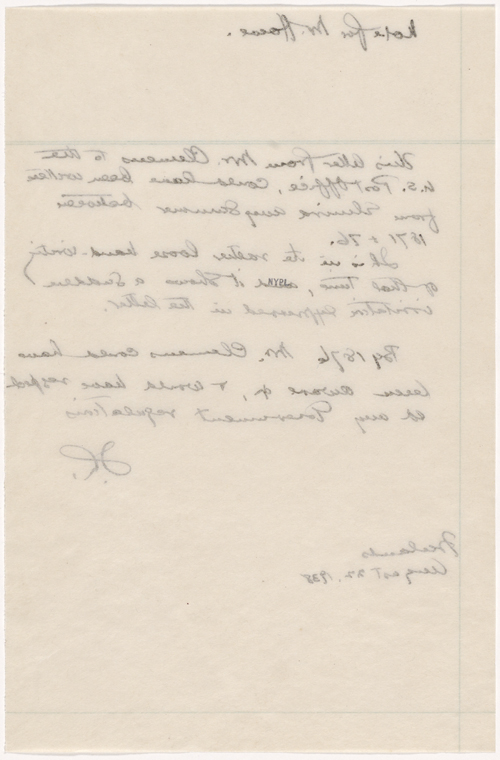 Note for Mr. Howe.
This letter from Mr. Clemens to the
U.S. Post Office, could have been written
from Elmira any Summer between
1871 & 76.
It is in the rather loose hand-writing
of that time, and it shows a sudden
irritation expressed in the letter.
NYPL
By 1876 Mr. Clemens could have
been aware of, & would have respect-
ed any Government regulations
Freelands
August 22, 1938